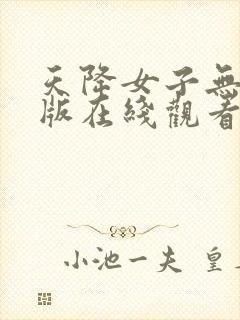 天降女子無
版在綫觀看
小池一夫 皇